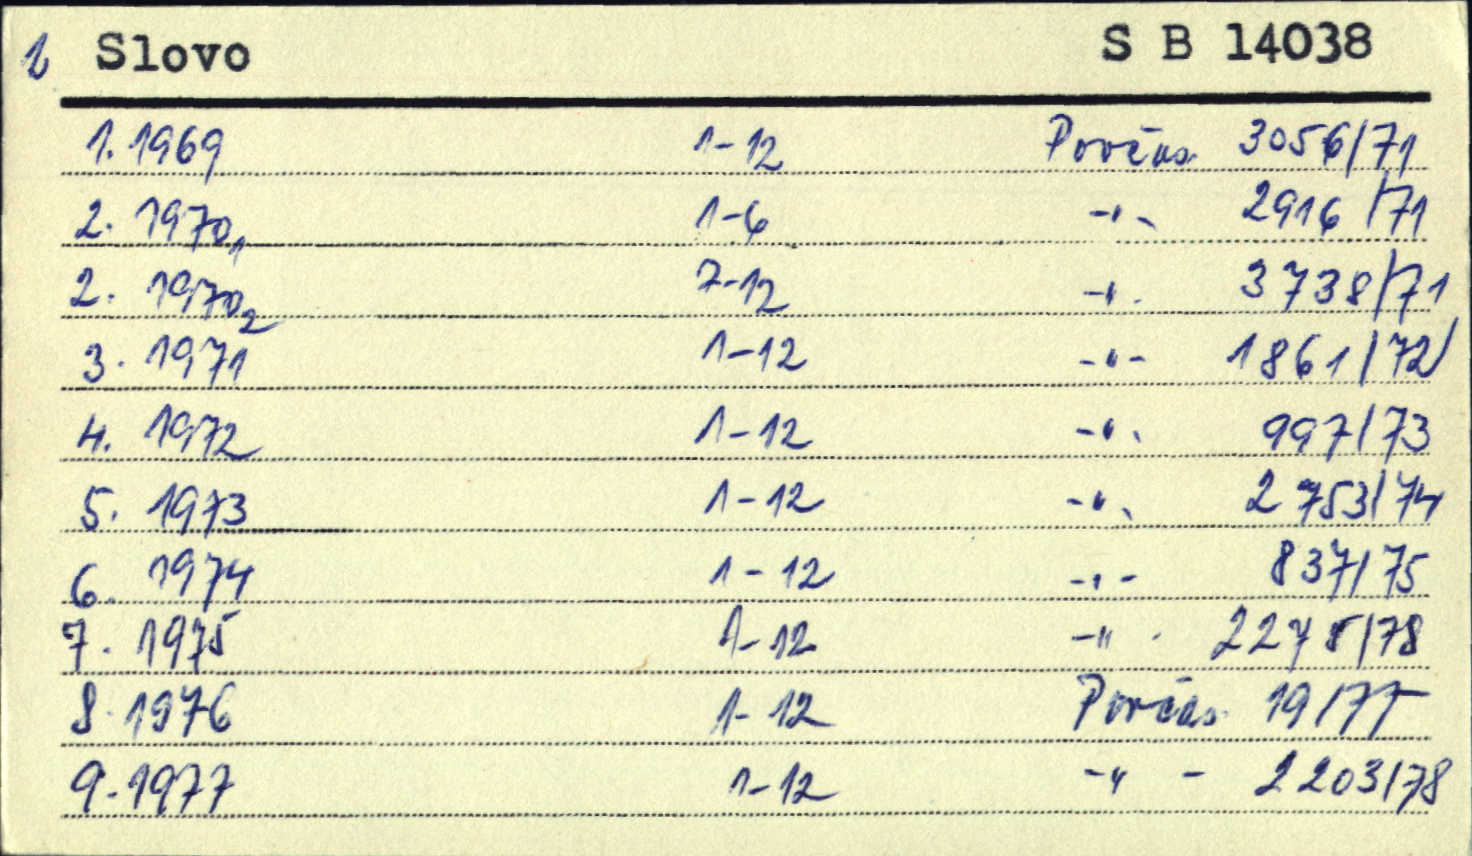 1 Slovo S B 14038
1. 1969 1-12 Povčas. 3056/71
2. 1970₁ 1-6 -"- 2916/71
2. 1970₂ 7-12 -"- 3738/71
3. 1971 1-12 -"- 1861/72
4. 1972 1-12 -"- 997/73
5. 1973 1-12 -"- 2753/74
6. 1974 1-12 -"- 837/75
7. 1975 1-12 -"- /78
8. 1976 1-12 Povčas. 19/77
9. 1977 1-12 -"- 2203/78